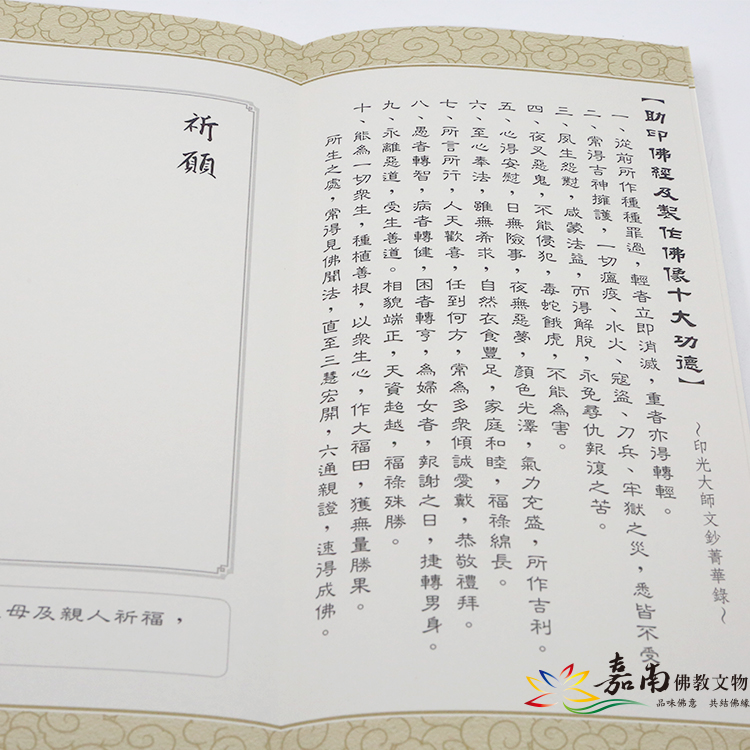 【助印佛經及製作佛像十大功德】
～印光大師文鈔菁華錄～
一、從前所作種種罪過，輕者立即消滅，重者亦得轉輕。
二、常得吉神擁護，一切瘟疫、水火、寇盜、刀兵、牢獄之災，悉皆不受
三、夙生怨懟，咸蒙法益，而得解脫，永免尋仇報復之苦。
四、夜叉惡鬼，不能侵犯，毒蛇餓虎，不能為害。
五、心得安慰，日無險事，夜無惡夢，顏色光澤，氣力充盛，所作吉利。
六、至心奉法，雖無希求，自然衣食豐足，家庭和睦，福祿綿長。
七、所言所行，人天歡喜，任到何方，常為多眾傾誠愛戴，恭敬禮拜。
八、愚者轉智，病者轉健，困者轉亨，為婦女者，報謝之日，捷轉男身。
九、永離惡道，受生善道。相貌端正，天資超越，福祿殊勝。
十、能為一切眾生，種植善根，以眾生心，作大福田，獲無量勝果。
所生之處，常得見佛聞法，直至三慧宏開，六通親證，速得成佛。
祈願
母及親人祈福，
嘉南佛教文物
品味佛意 共結佛緣